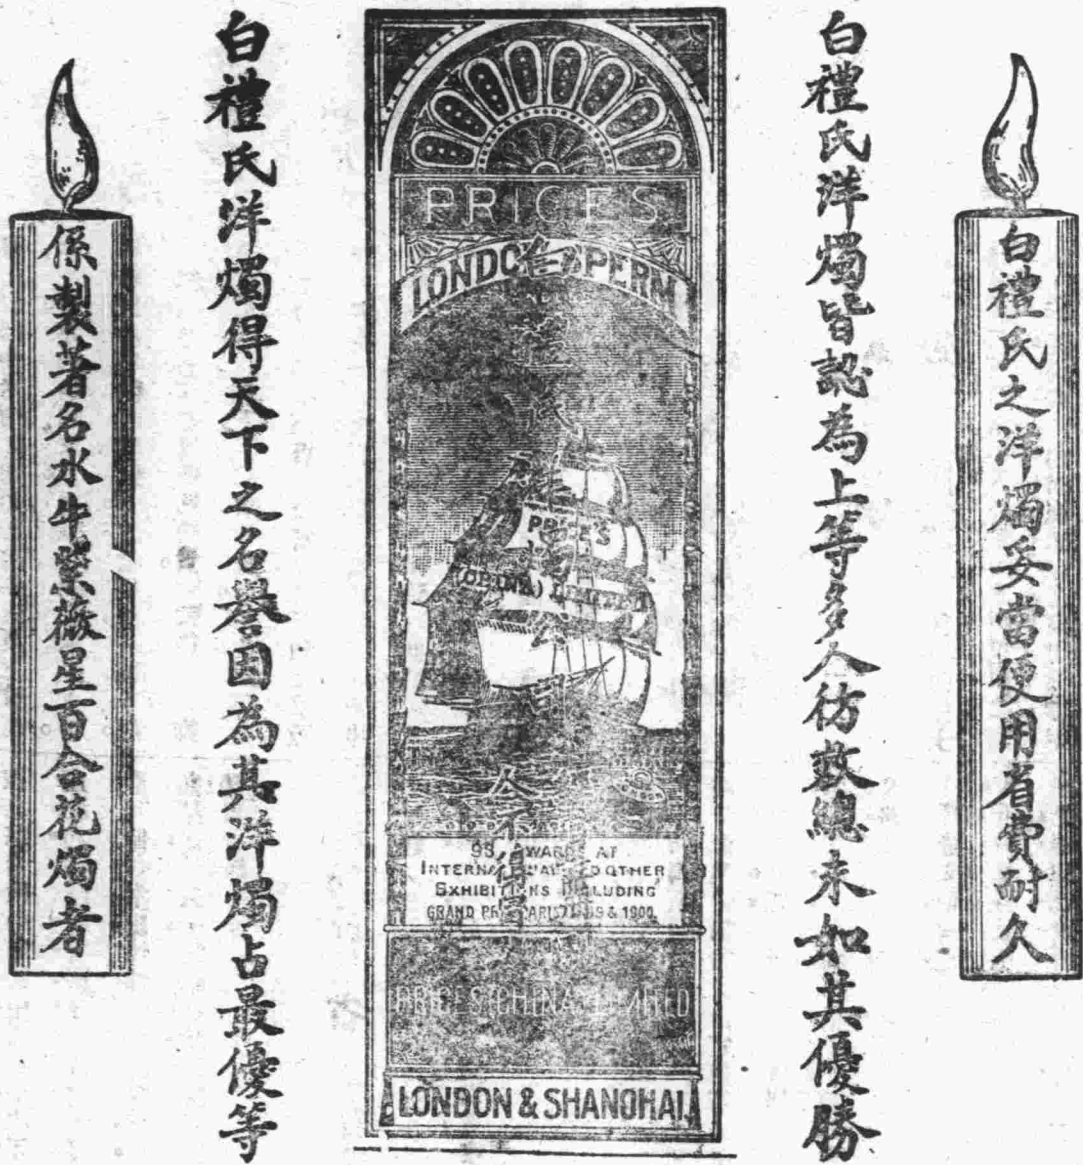 白禮氏之洋燭妥當便用省費耐久
白禮氏洋燭皆認為上等多人仿效總未如其優勝
PRICES
LONDON SPERM
PRICE'S
(CHINA) LIMITED
AWARDS AT
INTERNATIONAL AND OTHER
EXHIBITIONS INCLUDING
GRAND PRIX PARIS & 1900.
PRICES (CHINA) LIMITED
LONDON & SHANGHAI.
白禮氏洋燭得天下之名譽因為其洋燭占最優等
係製著名水牛紫薇星百合花燭者